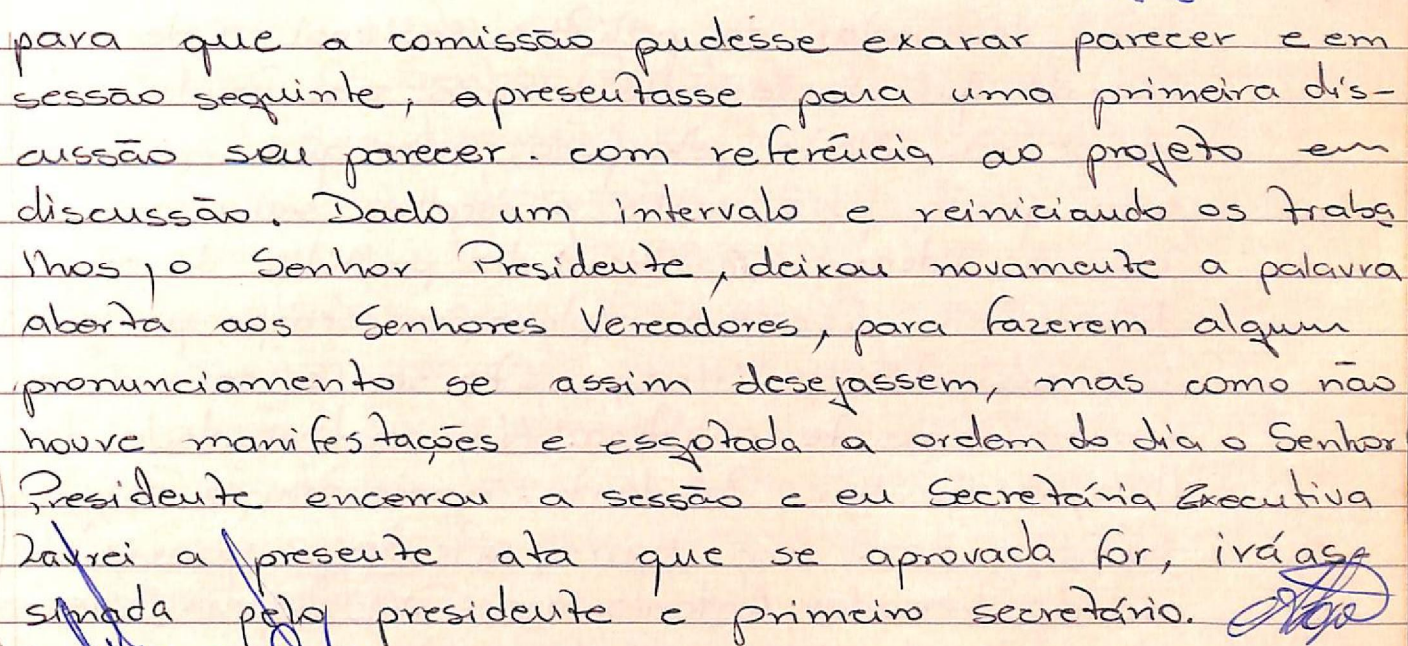 para que a comissão pudesse exarar parecer e em
sessão seguinte, apresentasse para uma primeira dis-
cussão seu parecer. com referência ao projeto em
discussão. Dado um intervalo e reiniciando os traba
lhos, o Senhor Presidente, deixou novamente a palavra
aberta aos Senhores Vereadores, para fazerem algum
pronunciamento se assim desejassem, mas como não
houve manifestações e esgotada a ordem do dia o Senhor
Presidente encerrou a sessão e eu Secretária Executiva
Lavrei a presente ata que se aprovada for, irá as
sinada pelo presidente e primeiro secretário.